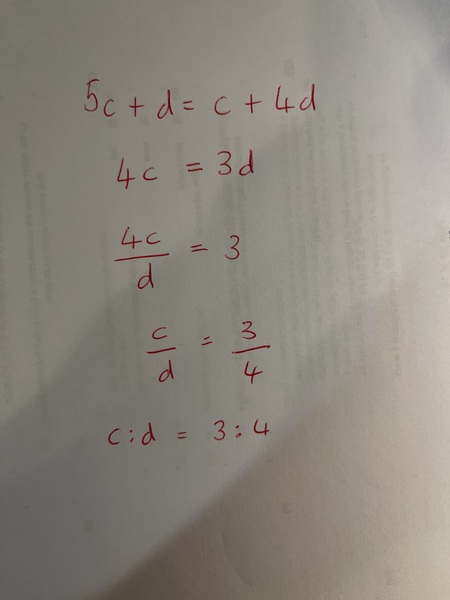 5c + d = c + 4d
4c = 3d
4c/d = 3
c/d = 3/4
c:d = 3:4